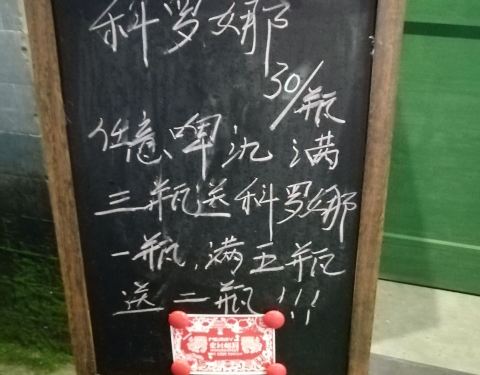 科罗娜
30/瓶
任意啤氿满
三瓶送科罗娜
一瓶,满五瓶
送二瓶!!!